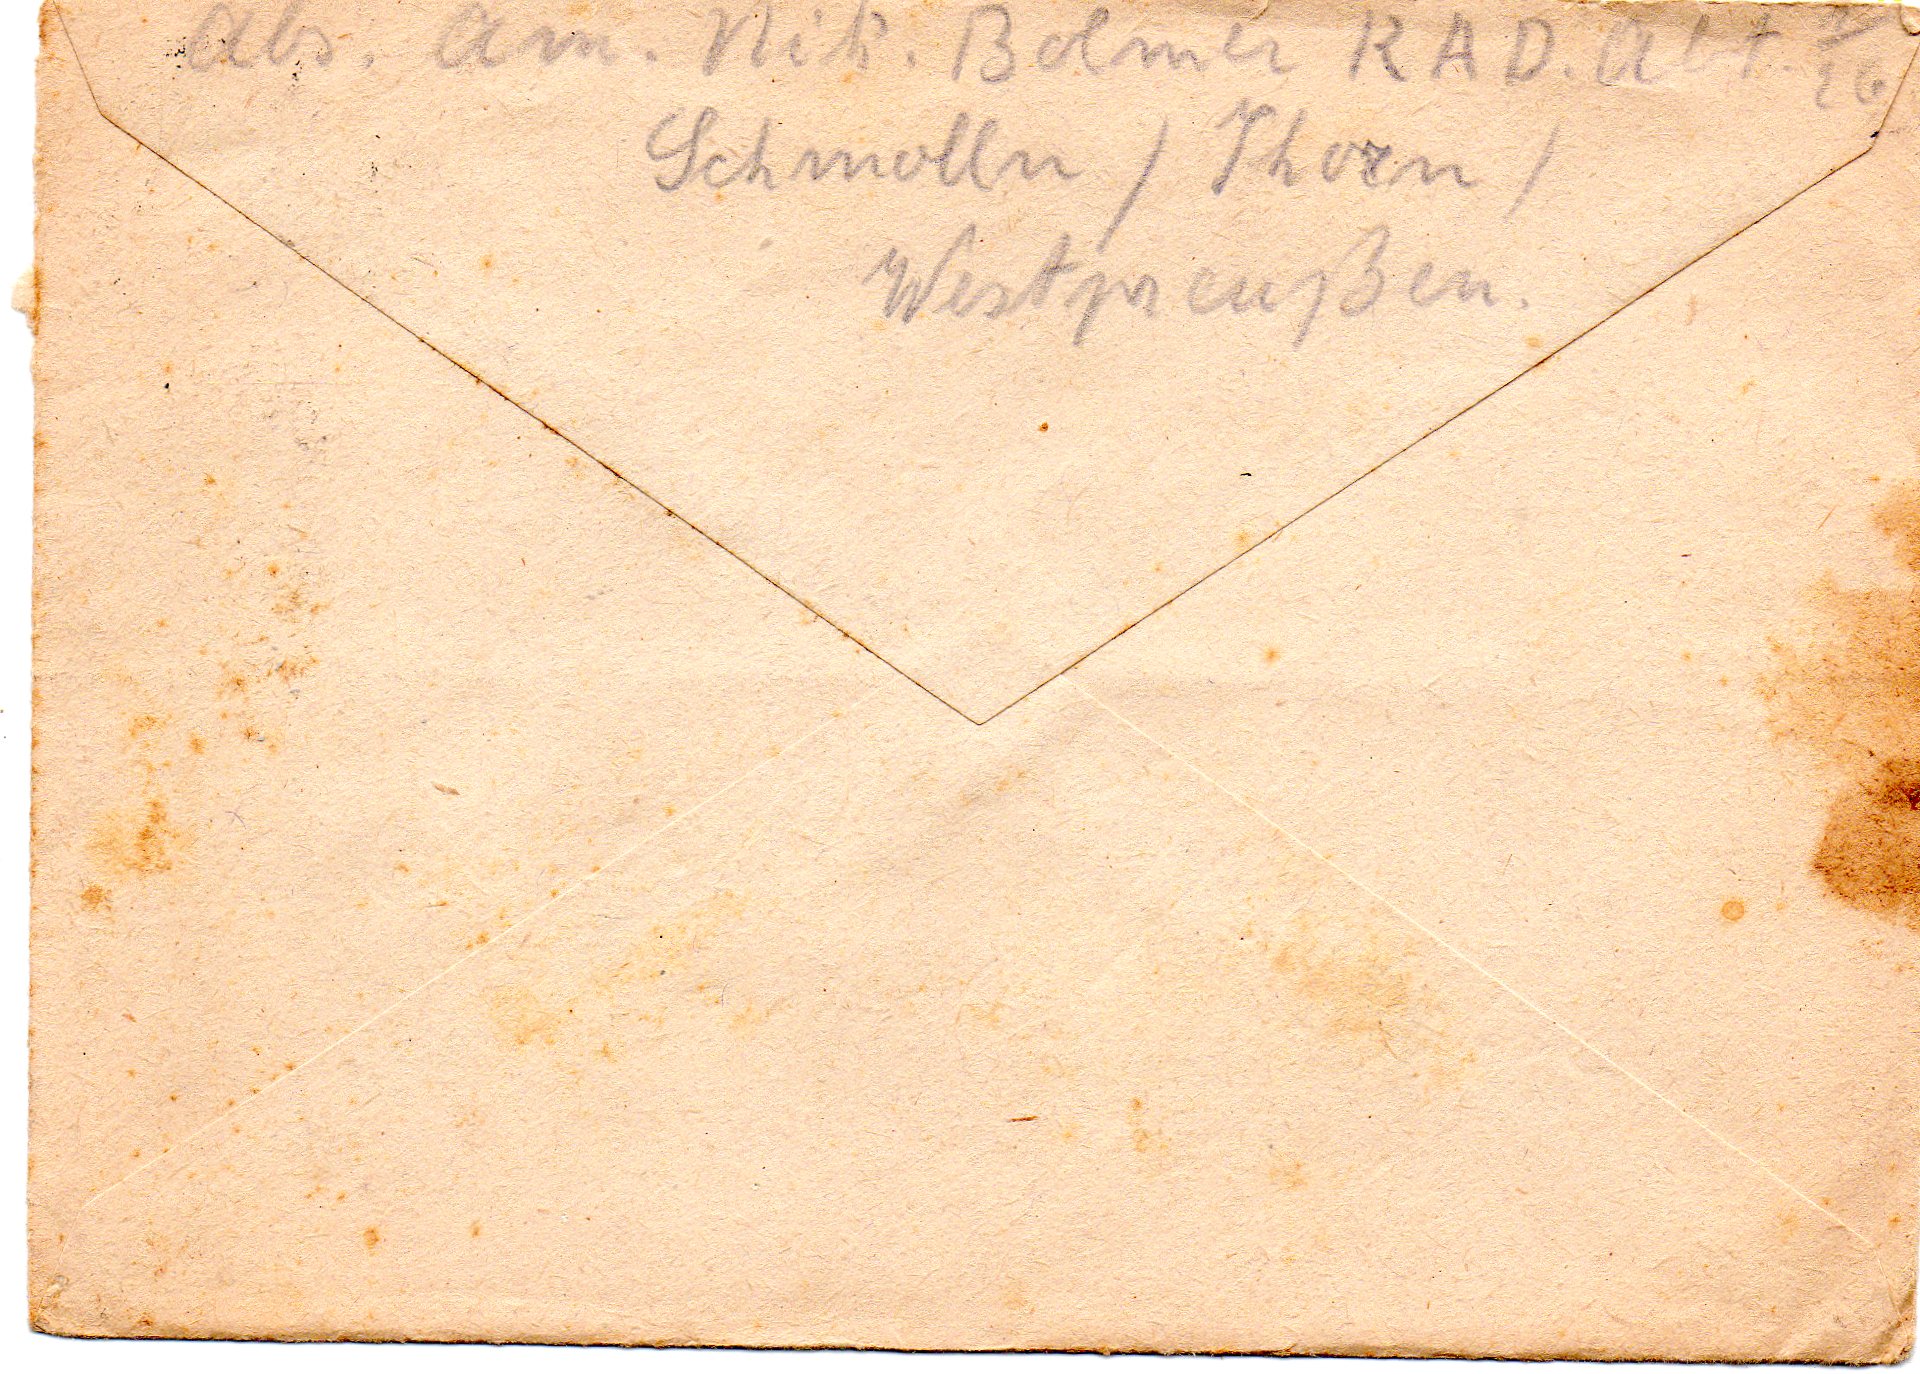 Abs. Am. Nik. Bolmer RAD. Abt.
Schmolln / Thorn /
Westpreußen.